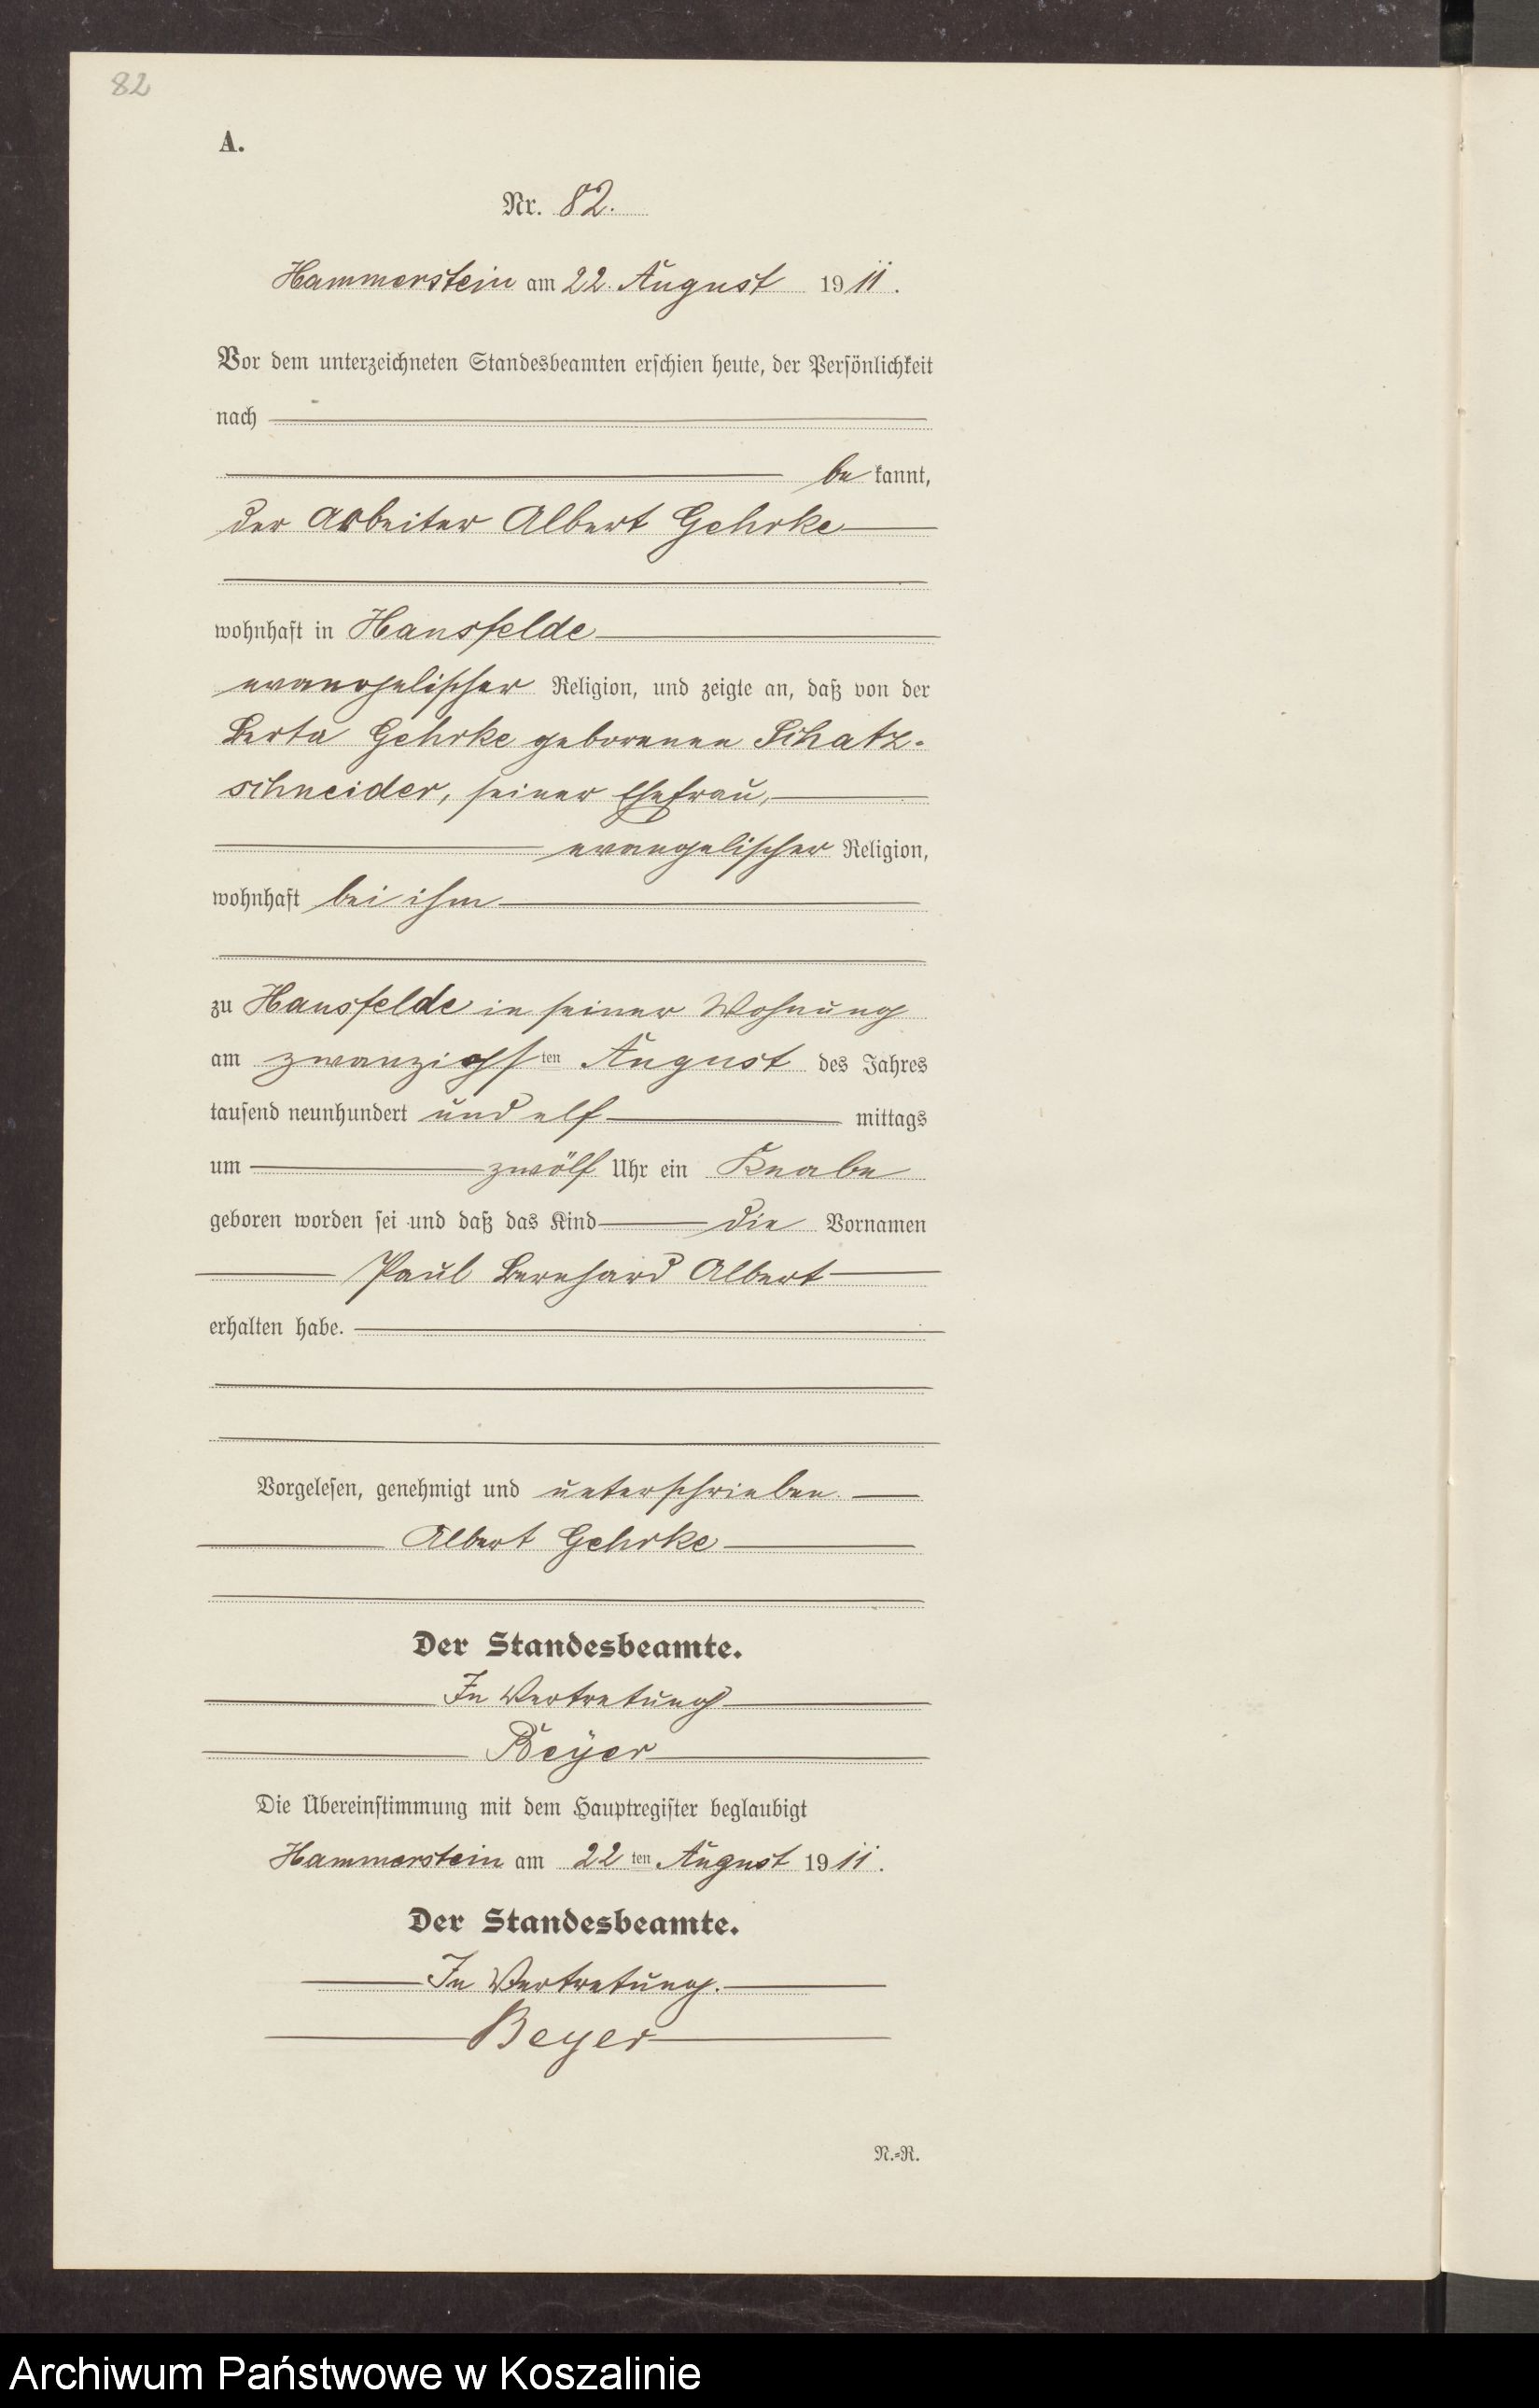 82
A.
Nr. 82.
Hammerstein am 22. August 1911.
Vor dem unterzeichneten Standesbeamten erschien heute, der Persönlichkeit
nach
bekannt,
der Arbeiter Albert Gehrke
wohnhaft in Hansfelde
evangelischer Religion, und zeigte an, daß von der
Berta Gehrke geborenen Schatz-
schneider, seiner Ehefrau,
evangelischer Religion,
wohnhaft bei ihm
zu Hansfelde in seiner Wohnung
am zwanzigsten August des Jahres
tausend neunhundert und elf mittags
um zwölf Uhr ein Knabe
geboren worden sei und daß das Kind die Vornamen
Paul Bernhard Albert
erhalten habe.
Vorgelesen, genehmigt und unterschrieben.
Albert Gehrke
Der Standesbeamte.
In Vertretung
Beyer
Die Übereinstimmung mit dem Hauptregister beglaubigt
Hammerstein am 22ten August 1911.
Der Standesbeamte.
In Vertretung.
Beyer
N.=R.
Archiwum Państwowe w Koszalinie